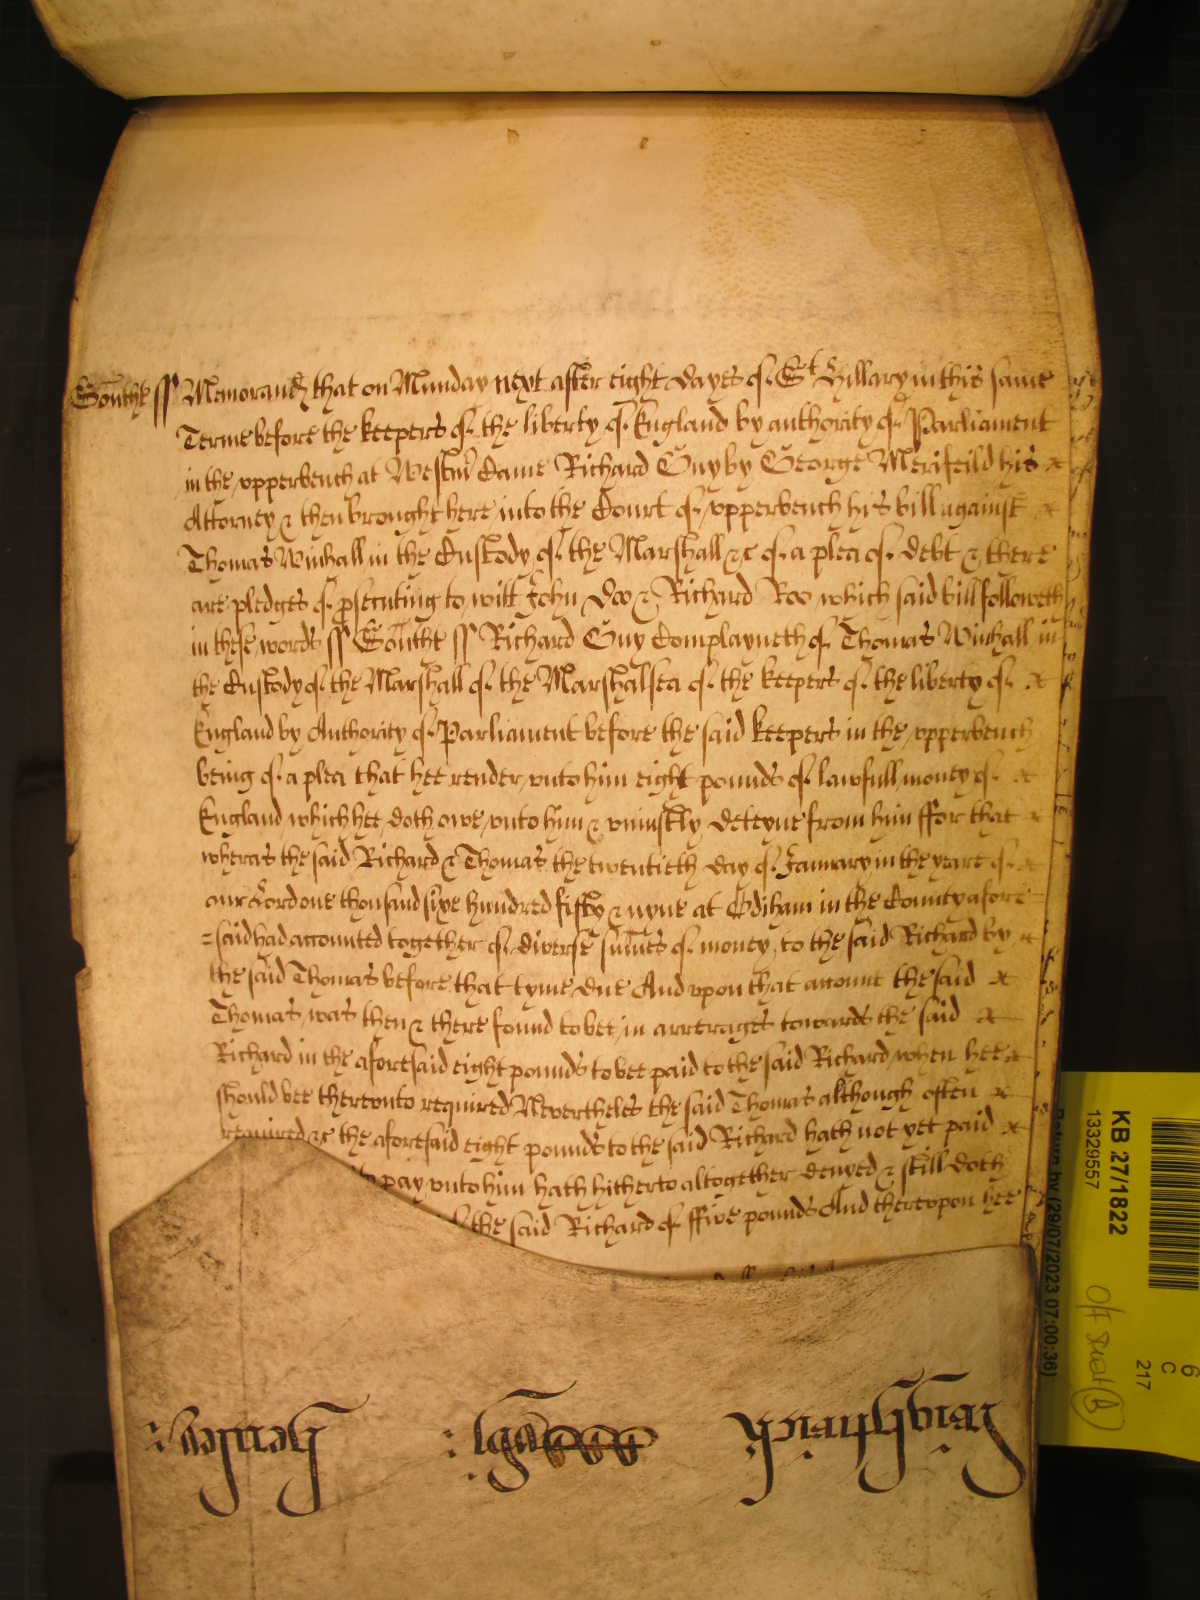 Southt ss Memorand that on Munday next after eight dayes of St Hillary in this same
Terme before the keepers of the liberty of England by authority of Parliament
in the upperbench at Westmr Came Richard Guy by George Merifeild his
Attorney & then brought here into the Court of upperbench his bill against
Thomas Winhall in the Custody of the Marshall &c of a plea of debt & there
are pledges of psecuting to witt John Doo & Richard Roo which said bill followeth
in these words ss Southt ss Richard Guy Complayneth of Thomas Winhall in
the Custody of the Marshall of the Marshalsea of the keepers of the liberty of
England by Authority of Parliament before the said keepers in the upperbench
being of a plea that hee render unto him eight pounds of lawfull money of
England which hee doth owe unto him & uniustly deteyne from him ffor that
wheras the said Richard & Thomas the twentieth day of January in the yeare of
our Lord one thousand sixe hundred fifty & nyne at Odiham in the County afore
=said had accounted together of diverse sumes of money to the said Richard by
the said Thomas before that tyme due And upon that account the said
Thomas was then & there found to bee in arrerages towards the said
Richard in the aforesaid eight pounds to bee paid to the said Richard when hee
should bee thereunto required Nevertheles the said Thomas although often
required &c the aforesaid eight pounds to the said Richard hath not yet paid
pay unto him hath hitherto altogether denyed & still doth
the said Richard of ffive pounds And thereupon hee
KB 27/1822
13329557
Return by (29/07/2023 07:00:36)
6
C
217